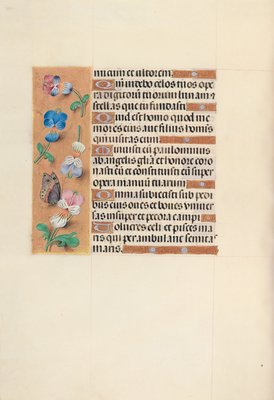 micum et ultorem
Qm̄ videbo celos tuos ope
ra digitoru tuorum lunam ⁊
stellas que tu fundasti
Quid est homo quod me
mor es eius aut filius homīs
qum̄ visitas eum
Minuisti eū paulominus
ab angelis glīa et honore coro
nasti eū et constituisti eū super
opera manuū tuarum
Omnia subiecisti sub pedi
bus eius oues et boues vniuer
sas insuper et pecora campi
Volucres celi et pisces ma
ris qui perambulant semitas
maris